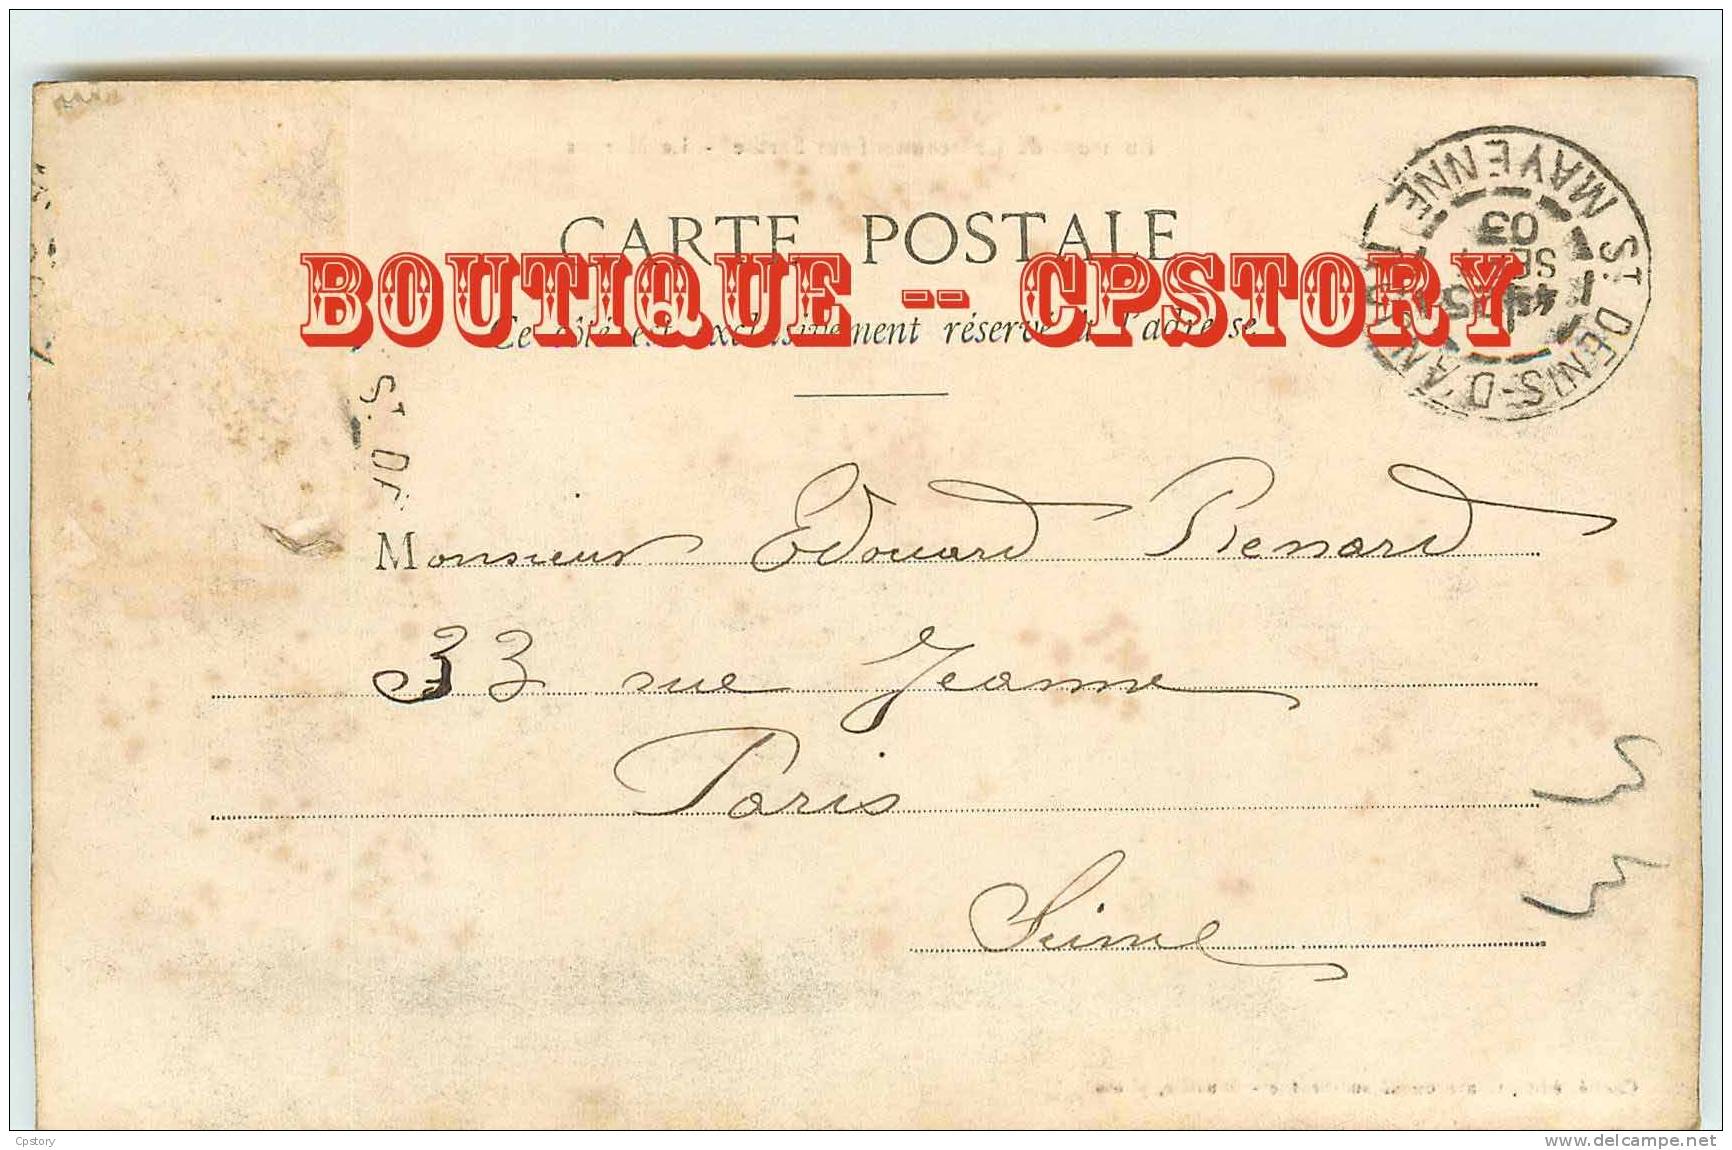 CARTE POSTALE
BOUTIQUE -- CPSTORY
Ce côté est exclusivement réservé à l'adresse
ST DENIS-D'AN
MAYENNE
SE
03
ST DE
Monsieur Edouard Renard
33 rue Jeanne
Paris
Seine
Cpstory
www.delcampe.net